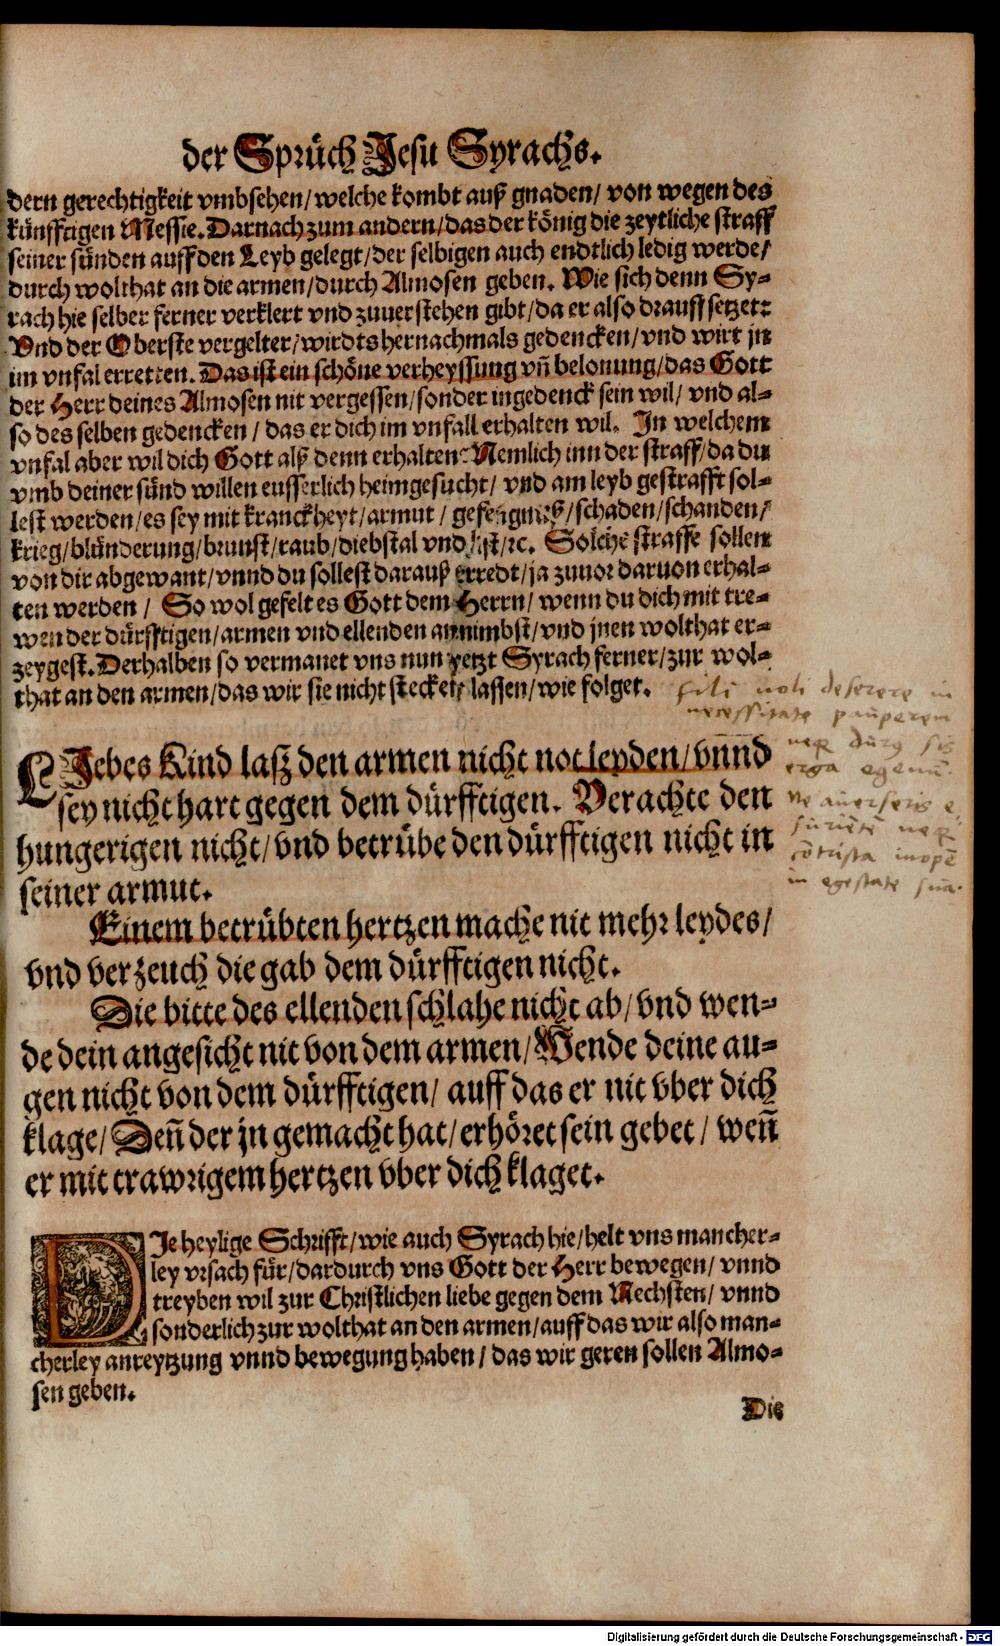 der Sprüch Jesu Syrachs.
dern gerechtigkeit vmbsehen/welche kombt auß gnaden/ von wegen des
künfftigen Messie. Darnach zum andern/das der könig die zeytliche straff
seiner sünden auff den Leyb gelegt/der selbigen auch endtlich ledig werde/
durch wolthat an die armen/durch Almosen geben. Wie sich denn Sy-
rach hie selber ferner verklert vnd zuuerstehen gibt/da er also drauff setzet:
Vnd der Oberste vergelter/wirdts hernachmals gedencken/vnd wirt jn
im vnfal erretten. Das ist ein schöne verheyssung vñ belonung/das Gott
der Herr deines Almosen nit vergessen/sonder ingedenck sein wil/ vnd al-
so des selben gedencken / das er dich im vnfall erhalten wil. In welchem
vnfal aber wil dich Gott alß denn erhalten? Nemlich inn der straff/da du
vmb deiner sünd willen eusserlich heimgesucht/ vnd am leyb gestrafft sol-
lest werden/es sey mit kranckheyt/armut / gefengnuß/schaden/schanden/
krieg/blünderung/brunst/raub/diebstal vnd list/rc. Solche straffe sollen
von dir abgewant/vnnd du sollest darauß erredt/ja zuuor daruon erhal-
ten werden / So wol gefelt es Gott dem Herrn/ wenn du dich mit tre-
wen der dürfftigen/armen vnd ellenden annimbst/vnd jnen wolthat er-
zeygest. Derhalben so vermanet vns nun yetzt Syrach ferner/zur wol-
that an den armen/das wir sie nicht stecken lassen/wie folget.
fili noli deserere in
necessitate pauperem
neq durus sis
erga egenū.
ne auerseris e-
suriētē neq
cōtrista inopē
in egestate sua.
LIebes Kind laß den armen nicht not leyden/vnnd
sey nicht hart gegen dem dürfftigen. Verachte den
hungerigen nicht/vnd betrübe den dürfftigen nicht in
seiner armut.
Einem betrübten hertzen mache nit mehr leydes/
vnd verzeuch die gab dem dürfftigen nicht.
Die bitte des ellenden schlahe nicht ab/vnd wen-
de dein angesicht nit von dem armen/Wende deine au-
gen nicht von dem dürfftigen/ auff das er nit vber dich
klage/Deñ der jn gemacht hat/erhöret sein gebet/ weñ
er mit trawrigem hertzen vber dich klaget.
DIe heylige Schrifft/wie auch Syrach hie/helt vns mancher-
ley vrsach für/dardurch vns Gott der Herr bewegen/ vnnd
treyben wil zur Christlichen liebe gegen dem Nechsten/ vnnd
sonderlich zur wolthat an den armen/auff das wir also man-
cherley anreytzung vnnd bewegung haben / das wir geren sollen Almo-
sen geben.
Die
Digitalisierung gefördert durch die Deutsche Forschungsgemeinschaft - DFG